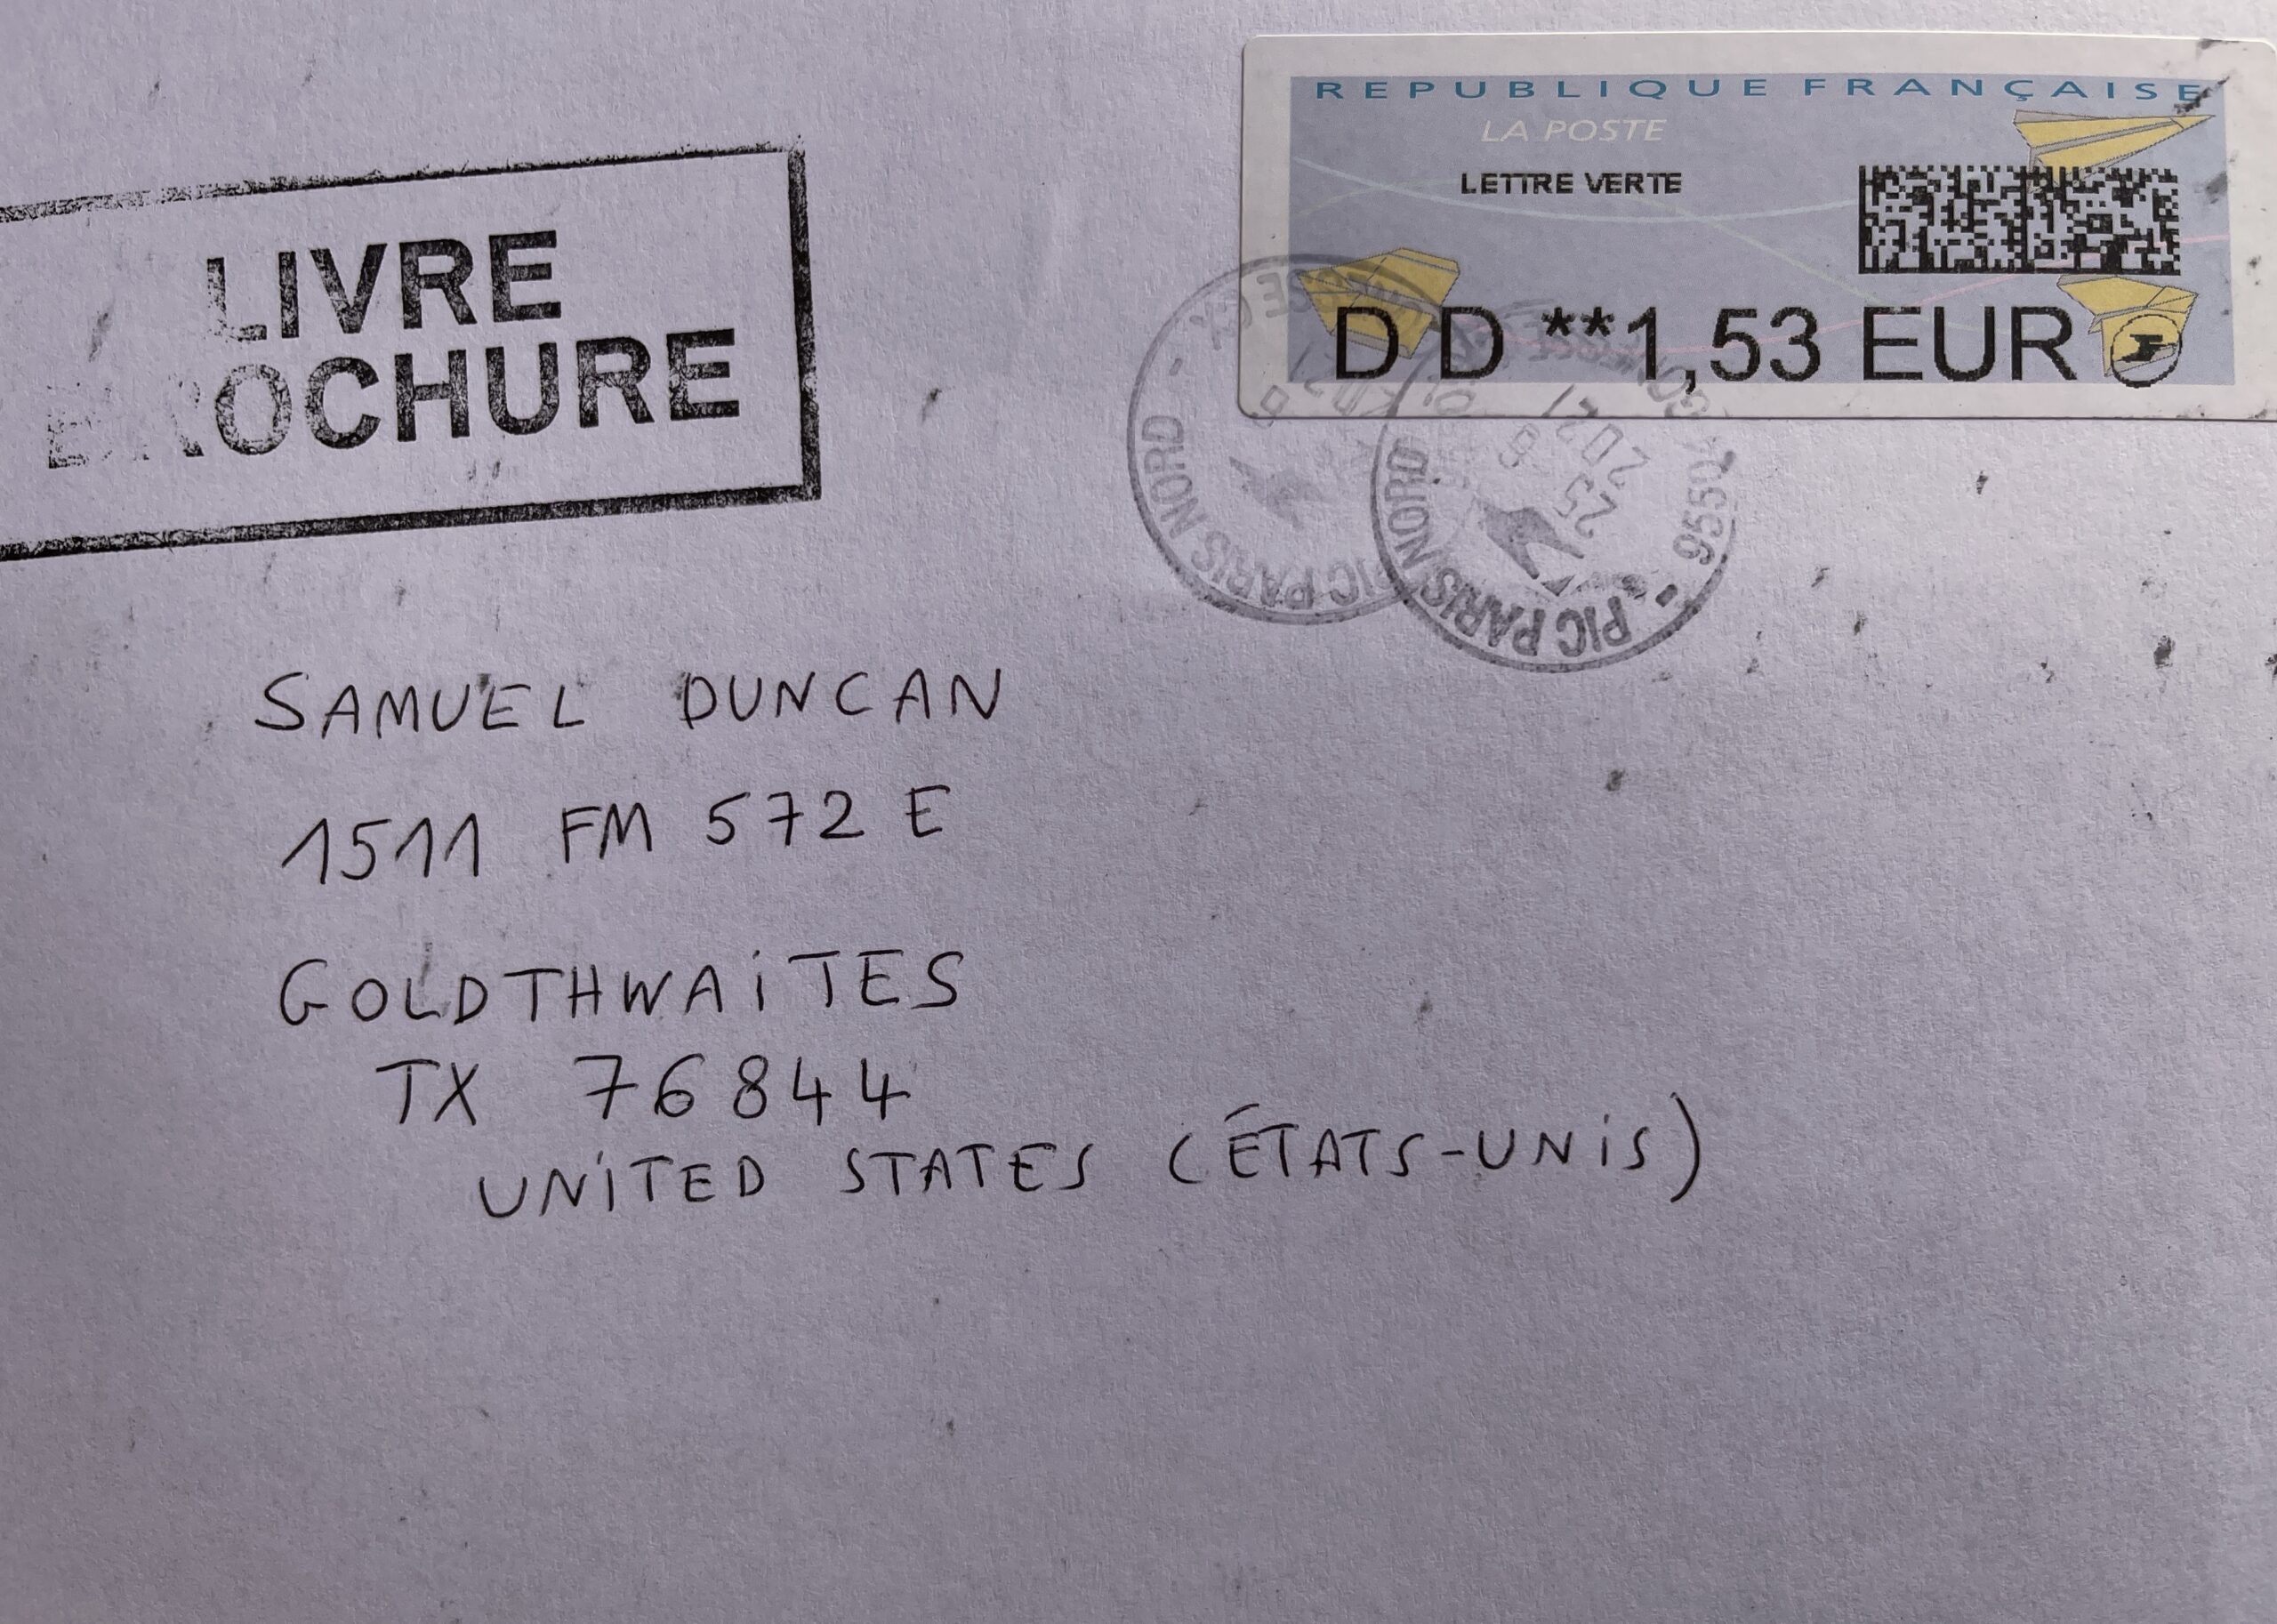 REPUBLIQUE FRANÇAISE
LA POSTE
LETTRE VERTE
DD **1,53 EUR
LIVRE
BROCHURE
PIC PARIS NORD
PIC PARIS NORD
25
2021
9550
SAMUEL DUNCAN
1511 FM 572 E
GOLDTHWAITES
TX 76844
UNITED STATES (ÉTATS-UNIS)